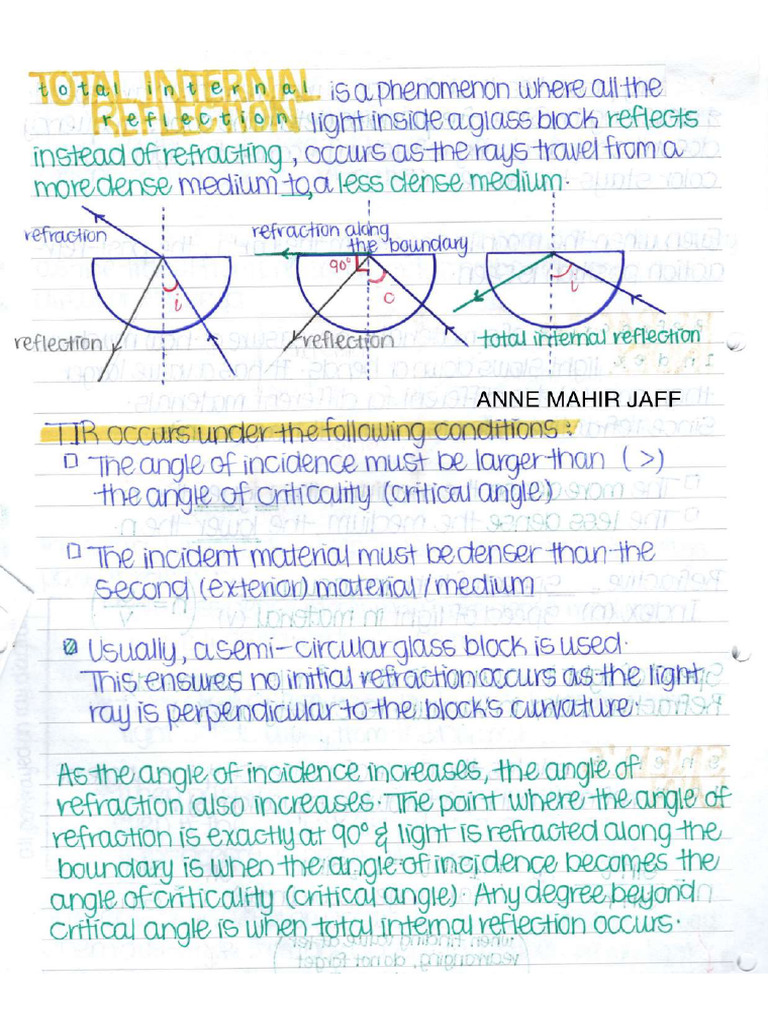 total internal is a phenomenon where all the
reflection light inside a glass block reflects
instead of refracting, occurs as the rays travel from a
more dense medium to, a less dense medium.
refraction
refraction along
the boundary
90°
i
c
i
reflection
reflection
total internal reflection
ANNE MAHIR JAFF
TIR occurs under the following conditions:
The angle of incidence must be larger than (>)
the angle of criticality (critical angle)
The incident material must be denser than the
second (exterior) material/medium
Usually, a semi-circular glass block is used.
This ensures no initial refraction occurs as the light
ray is perpendicular to the block's curvature.
As the angle of incidence increases, the angle of
refraction also increases. The point where the angle of
refraction is exactly at 90° & light is refracted along the
boundary is when the angle of incidence becomes the
angle of criticality (critical angle). Any degree beyond
critical angle is when total internal reflection occurs.